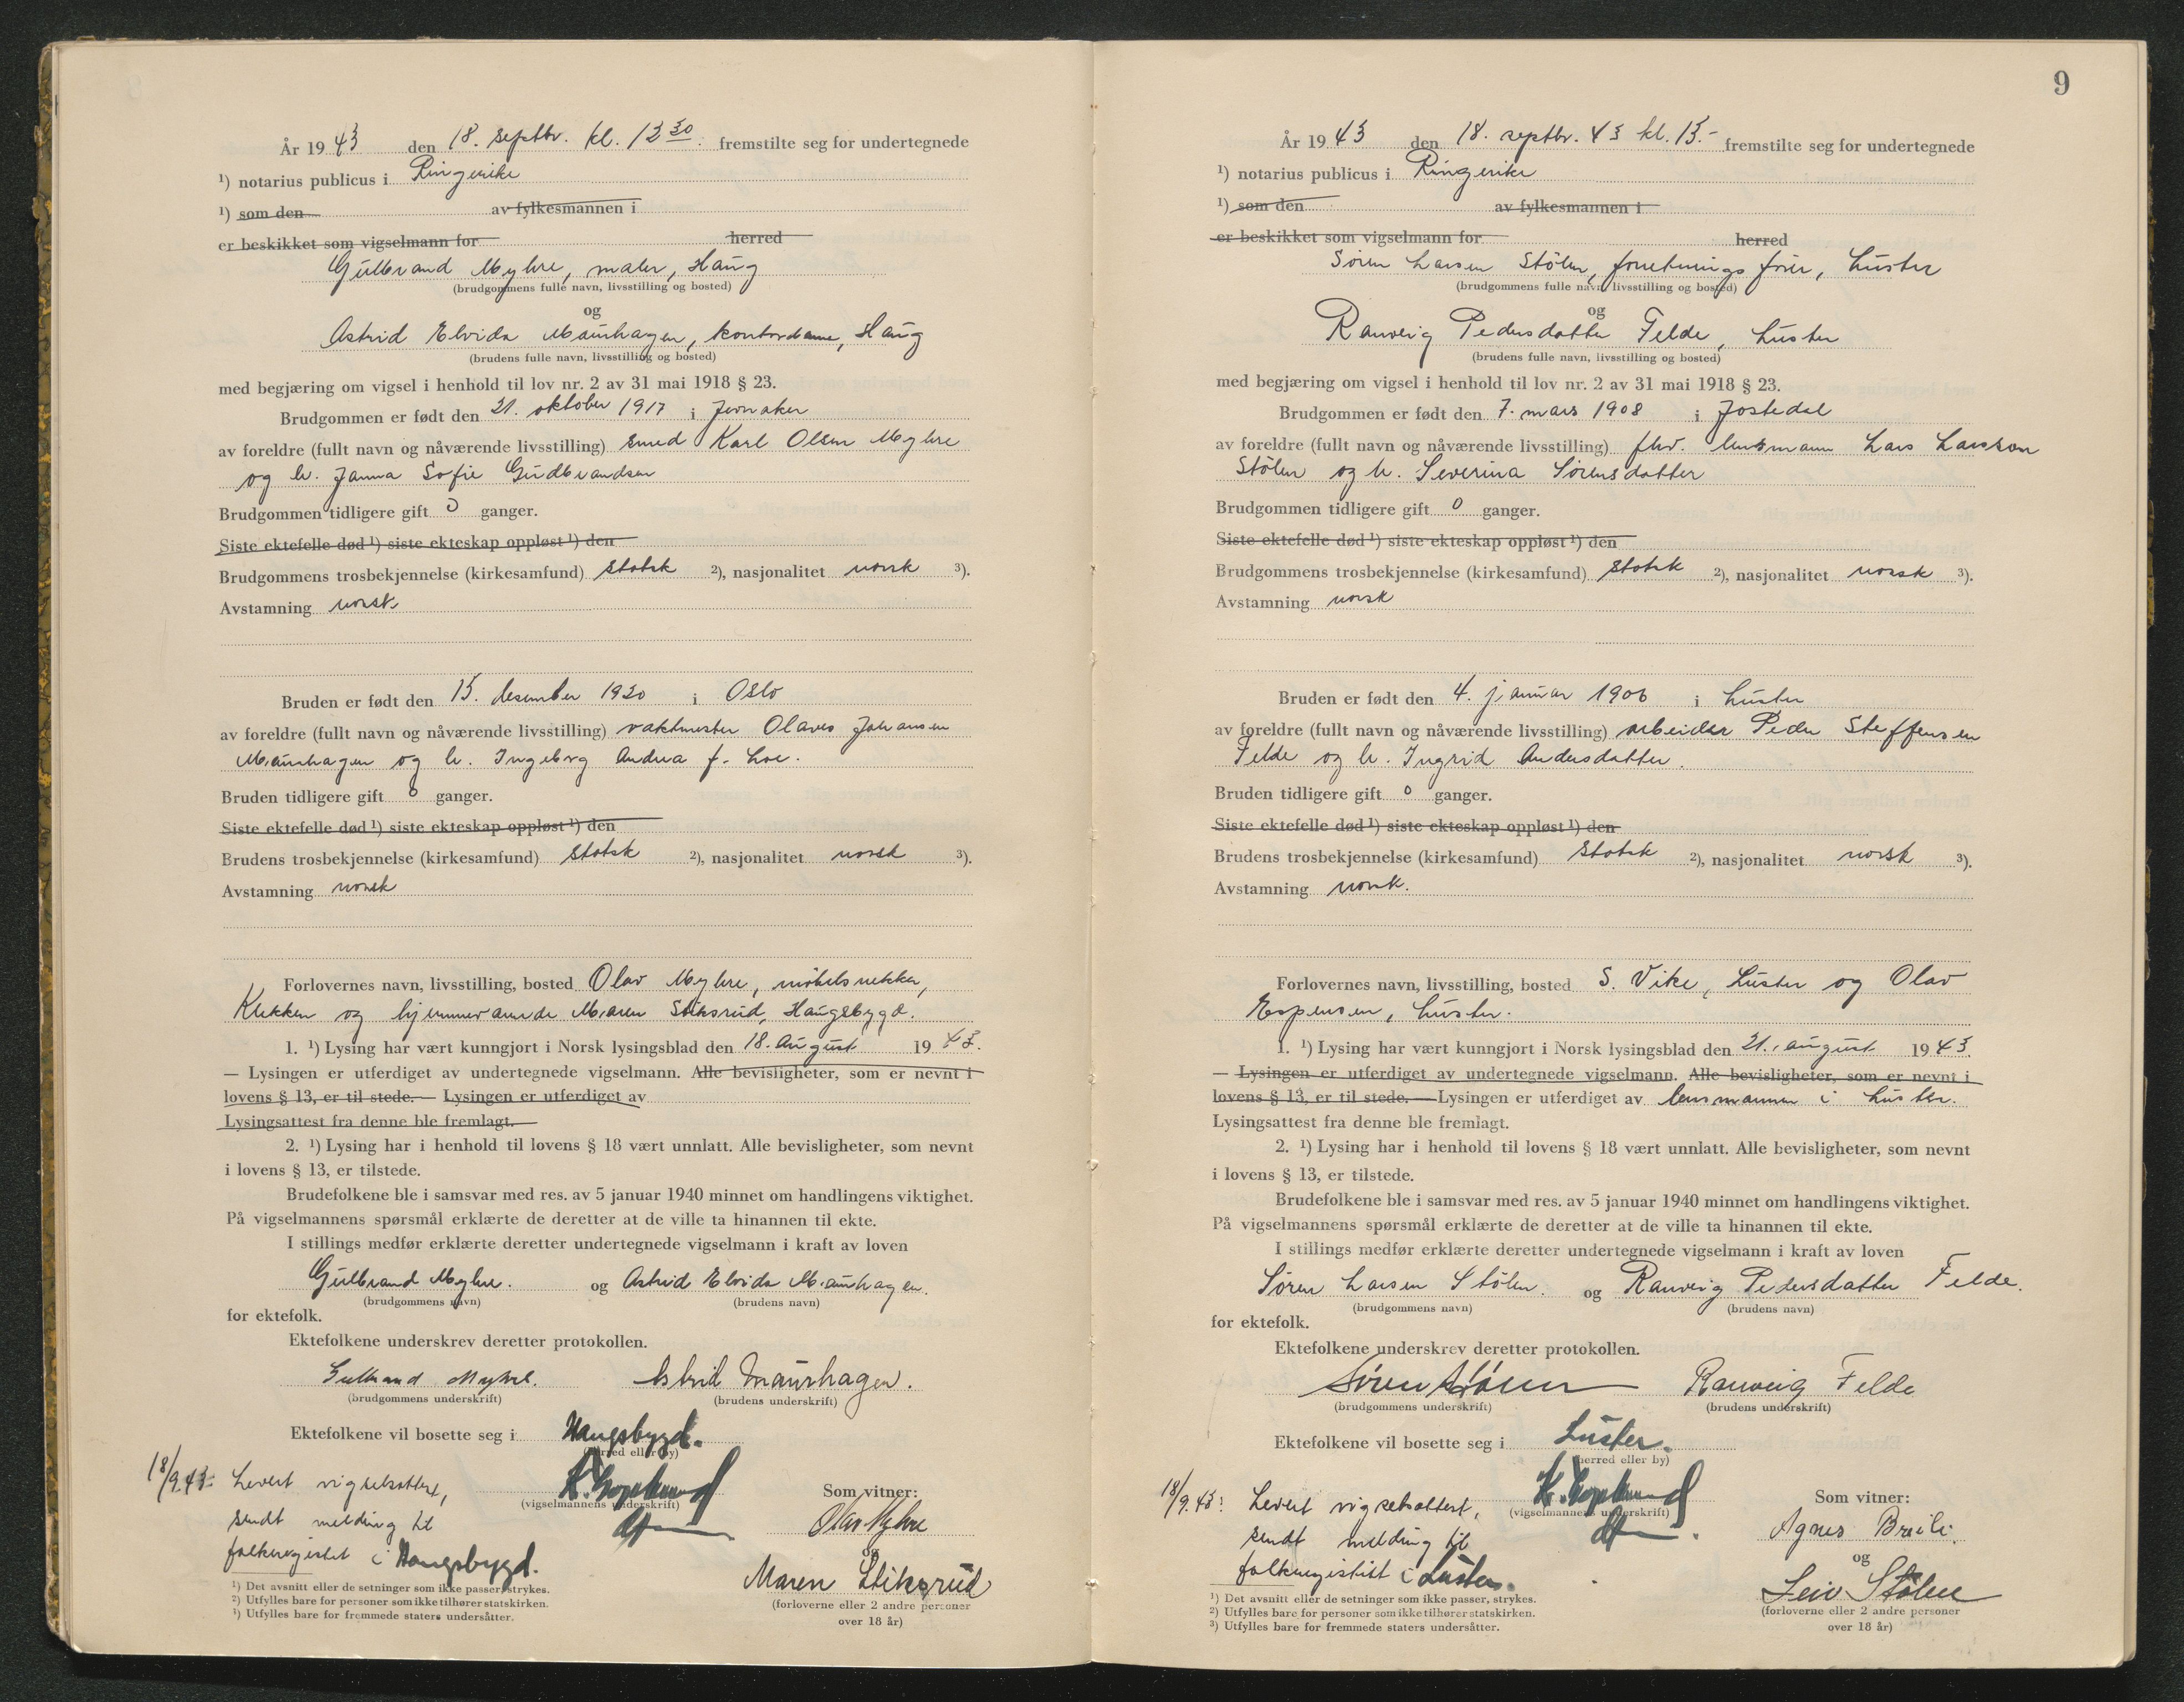 År 1943 den 18. septbr. kl. 12 30. fremstilte seg for undertegnede
¹) notarius publicus i Ringerike
¹) som den av fylkesmannen i
er beskikket som vigselmann for herred
Gülbrand Myhre, maler, Haug
(brudgommens fulle navn, livsstilling og bosted)
og
Astrid Elvida Maurhagen, kontordame, Haug
(brudens fulle navn, livsstilling og bosted)
med begjæring om vigsel i henhold til lov nr. 2 av 31 mai 1918 § 23.
Brudgommen er født den 21. oktober 1917 i Jevnaker
av foreldre (fullt navn og nåværende livsstilling) smed Karl Olsen Myhre
og h. Janna Sofie Gudbrandsen
Brudgommen tidligere gift 0 ganger.
Siste ektefelle død ¹) siste ekteskap oppløst ¹) den
Brudgommens trosbekjennelse (kirkesamfund) statsk ²), nasjonalitet norsk ³).
Avstamning norsk
Bruden er født den 15. desember 1920 i Oslo
av foreldre (fullt navn og nåværende livsstilling) vaktmester Olaves Johansen
Maurhagen og h. Ingeborg Andrea f. Loe.
Bruden tidligere gift 0 ganger.
Siste ektefelle død ¹) siste ekteskap oppløst ¹) den
Brudens trosbekjennelse (kirkesamfund) statsk ²), nasjonalitet norsk ³).
Avstamning norsk
Forlovernes navn, livsstilling, bosted Olav Myhre, møbelsnekker,
Klekken og hjemmeværende Maren Stiksrud, Haugsbygd.
1. ¹) Lysing har vært kunngjort i Norsk lysingsblad den 18. august 1943.
— Lysingen er utferdiget av undertegnede vigselmann. Alle bevisligheter, som er nevnt i
lovens § 13, er til stede. — Lysingen er utferdiget av
Lysingsattest fra denne ble fremlagt.
2. ¹) Lysing har i henhold til lovens § 18 vært unnlatt. Alle bevisligheter, som nevnt
i lovens § 13, er tilstede.
Brudefolkene ble i samsvar med res. av 5 januar 1940 minnet om handlingens viktighet.
På vigselmannens spørsmål erklærte de deretter at de ville ta hinannen til ekte.
I stillings medfør erklærte deretter undertegnede vigselmann i kraft av loven
Gülbrand Myhre. og Astrid Elvida Maurhagen.
(brudgommens navn) (brudens navn)
for ektefolk.
Ektefolkene underskrev deretter protokollen.
Gulbrand Myhre. Astrid Maurhagen.
(brudgommens underskrift) (brudens underskrift)
Ektefolkene vil bosette seg i Haugsbygd.
(herred eller by)
18/9.43: Levert vigselsattest,
(vigselmannens underskrift) Som vitner:
sendt melding til Olav Myhre
folkeregistret i Haugsbygd. og
Maren Stiksrud
(forloverne eller 2 andre personer
over 18 år)
¹) Det avsnitt eller de setninger som ikke passer, strykes.
²) Utfylles bare for personer som ikke tilhører statskirken.
³) Utfylles bare for fremmede staters undersåtter.
9
År 1943 den 18. septbr. 43 kl. 15.- fremstilte seg for undertegnede
¹) notarius publicus i Ringerike
¹) som den av fylkesmannen i
er beskikket som vigselmann for herred
Søren Larsen Stølen, forretningsfører, Luster
(brudgommens fulle navn, livsstilling og bosted)
og
Ranveig Pedersdatter Felde, Luster
(brudens fulle navn, livsstilling og bosted)
med begjæring om vigsel i henhold til lov nr. 2 av 31 mai 1918 § 23.
Brudgommen er født den 7. mars 1908 i Jostedal
av foreldre (fullt navn og nåværende livsstilling) fhv. lensmann Lars Larsson
Stølen og h. Severina Sørensdatter
Brudgommen tidligere gift 0 ganger.
Siste ektefelle død ¹) siste ekteskap oppløst ¹) den
Brudgommens trosbekjennelse (kirkesamfund) statsk ²), nasjonalitet norsk ³).
Avstamning norsk
Bruden er født den 4. januar 1906 i Luster
av foreldre (fullt navn og nåværende livsstilling) arbeider Peder Steffensen
Felde og h. Ingrid Andersdatter.
Bruden tidligere gift 0 ganger.
Siste ektefelle død ¹) siste ekteskap oppløst ¹) den
Brudens trosbekjennelse (kirkesamfund) statsk ²), nasjonalitet norsk ³).
Avstamning norsk.
Forlovernes navn, livsstilling, bosted S. Vike, Luster og Olav
Espensen, Luster.
1. ¹) Lysing har vært kunngjort i Norsk lysingsblad den 21. august 1943.
— Lysingen er utferdiget av undertegnede vigselmann. Alle bevisligheter, som er nevnt i
lovens § 13, er til stede. — Lysingen er utferdiget av lensmannen i Luster.
Lysingsattest fra denne ble fremlagt.
2. ¹) Lysing har i henhold til lovens § 18 vært unnlatt. Alle bevisligheter, som nevnt
i lovens § 13, er tilstede.
Brudefolkene ble i samsvar med res. av 5 januar 1940 minnet om handlingens viktighet.
På vigselmannens spørsmål erklærte de deretter at de ville ta hinannen til ekte.
I stillings medfør erklærte deretter undertegnede vigselmann i kraft av loven
Søren Larsen Stølen. og Ranveig Pedersdatter Felde.
(brudgommens navn) (brudens navn)
for ektefolk.
Ektefolkene underskrev deretter protokollen.
Søren Stølen Ranveig Felde
(brudgommens underskrift) (brudens underskrift)
Ektefolkene vil bosette seg i Luster.
(herred eller by)
18/9.43: Levert vigselsattest,
(vigselmannens underskrift) Som vitner:
sendt melding til Agnes Breili.
folkeregistret i Luster. og
Leiv Stølen
(forloverne eller 2 andre personer
over 18 år)
¹) Det avsnitt eller de setninger som ikke passer, strykes.
²) Utfylles bare for personer som ikke tilhører statskirken.
³) Utfylles bare for fremmede staters undersåtter.